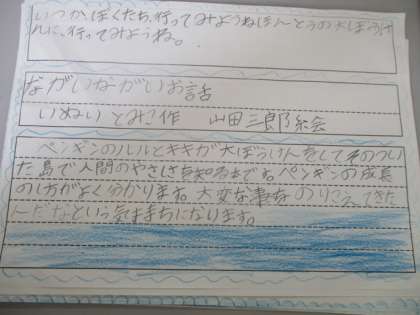 いつか、ぼくたち、行ってみようねほんとうの大ぼうけ
んに、行ってみようね。
ながいながいお話
いぬいとみこ作 山田三郎絵
ペンギンのルルとキキが大ぼうけんをしてそのつい
た島で人間のやさしさを知るまでを。ペンギンの成長
のしかたがよく分かります。大変な事をのりこえてきた
んだなという気持ちになります。